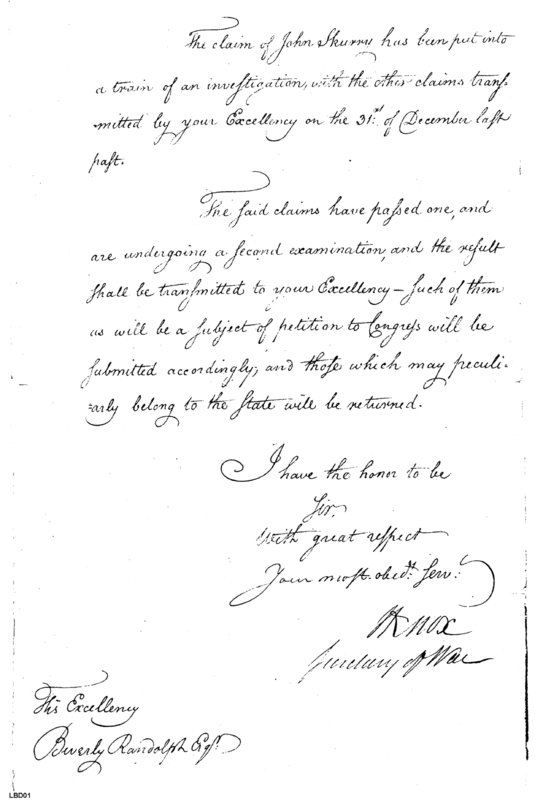 The claim of John Skurry has been put into
a train of an investigation, with the other claims trans-
mitted by your Excellency on the 31st. of December last
past.
The said claims have passed one, and
are undergoing a second examination, and the result
shall be transmitted to your Excellency – such of them
as will be a subject of petition to Congress will be
submitted accordingly; and those which may peculi-
-arly belong to the State will be returned.
I have the honor to be
Sir,
With great respect
Your most. obedt. Servt.
HKnox
Secretary of War
His Excellency
Beverly Randolph Esqr.
LBD01